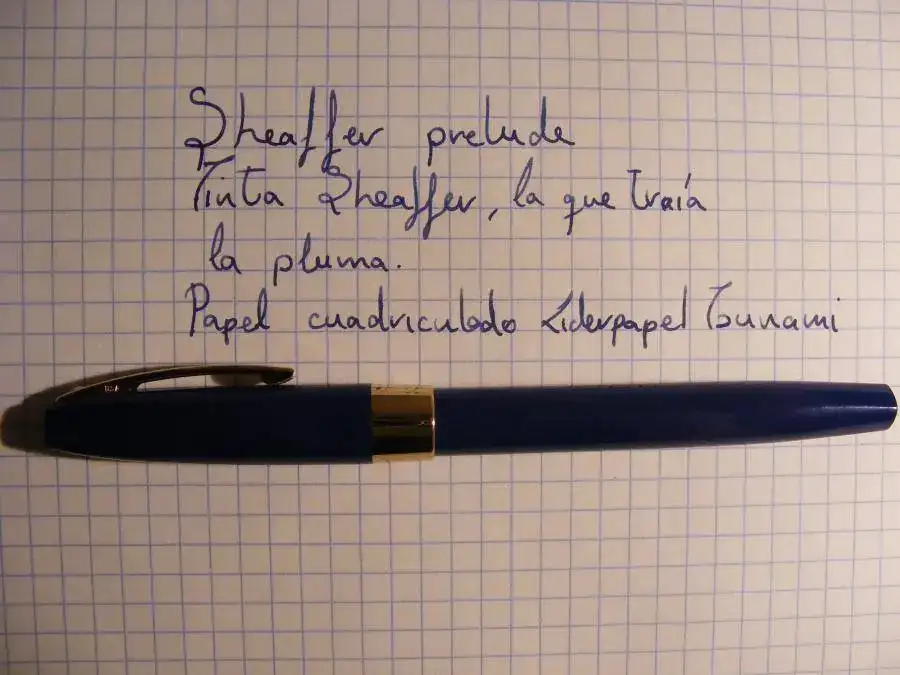 Sheaffer prelude
Tinta Sheaffer, la que traía
la pluma.
Papel cuadriculado Liderpapel Tsunami